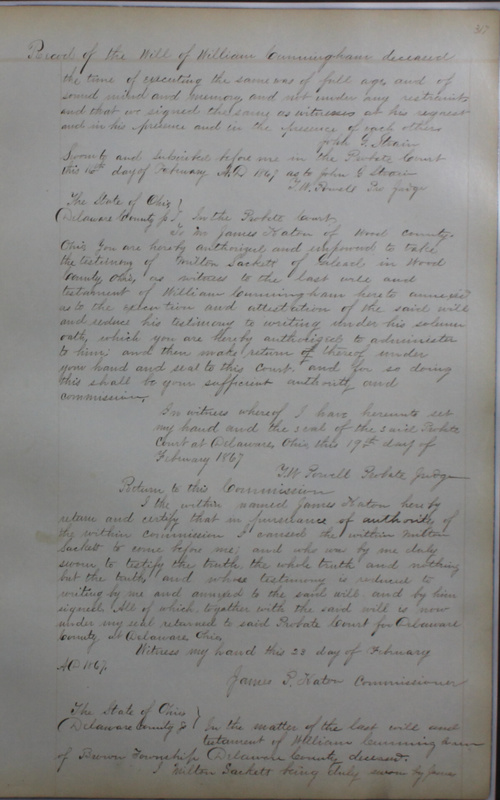 Record of the Will of William Cunningham deceased
the time of executing the same was of full age, and of
sound mind and memory, and not under any restraint,
and that we signed the same as witnesses at his request
and in his presence and in the presence of each other
John G. Strain
Sworn to and subscribed before me in the Probate Court
this day of February A.D. 1867 as to John G Strain
T. W. Powell Pro Judge
The State of Ohio }
Delaware County } In the Probate Court
To Mr James Haton of Wood County,
Ohio You are hereby authorized and empowered to take
the testimony of Milton Sackett of in Wood
County Ohio, as witness to the last will and
testament of William Cunningham hereto annexed
as to the execution and attestation of the said will
and reduce his testimony to writing under his solemn
oath, which you are hereby authorized to administer
to him; and then make return of thereof under
your hand and seal to this Court. and for so doing
this shall be your sufficient authority and
commission,
In witness whereof I have hereunto set
my hand and the seal of the said Probate
Court at Delaware Ohio this 19th day of
February 1867
T. W. Powell Probate Judge
Return to this Commission
I the within named James Haton hereby
return and certify that in pursuance of authority of
the within commission I caused the within Milton
Sackett to come before me; and who was by me duly
sworn to testify the truth the whole truth and nothing
but the truth and whose testimony is reduced to
writing by me and annexed to the said will and by him
signed, All of which together with the said will is now
under my seal returned to said Probate Court for Delaware
County at Delaware Ohio
Witness my hand this 22 day of February
AD 1867.
James P. Haton Commissioner
The State of Ohio }
Delaware County } In the matter of the last will and
testament of William Cunningham
of Brown Township Delaware County deceased.
I Milton Sackett being duly sworn by James